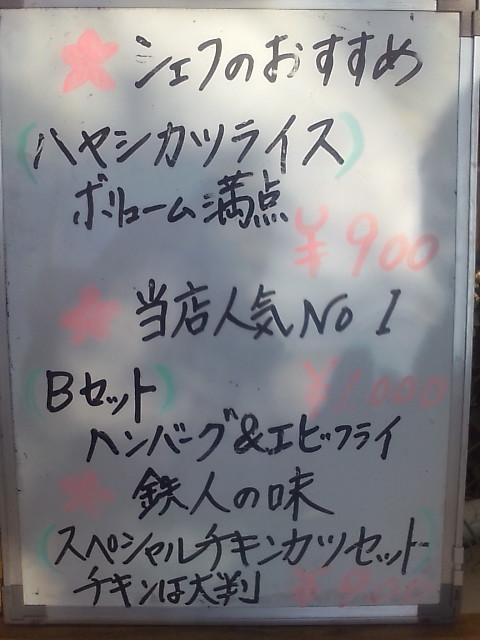 シェフのおすすめ
(ハヤシカツライス)
ボリューム満点
¥900
当店人気No 1
(Bセット)
¥1,000
ハンバーグ&エビフライ
鉄人の味
(スペシャルチキンカツセット)
チキンは大判 ¥900